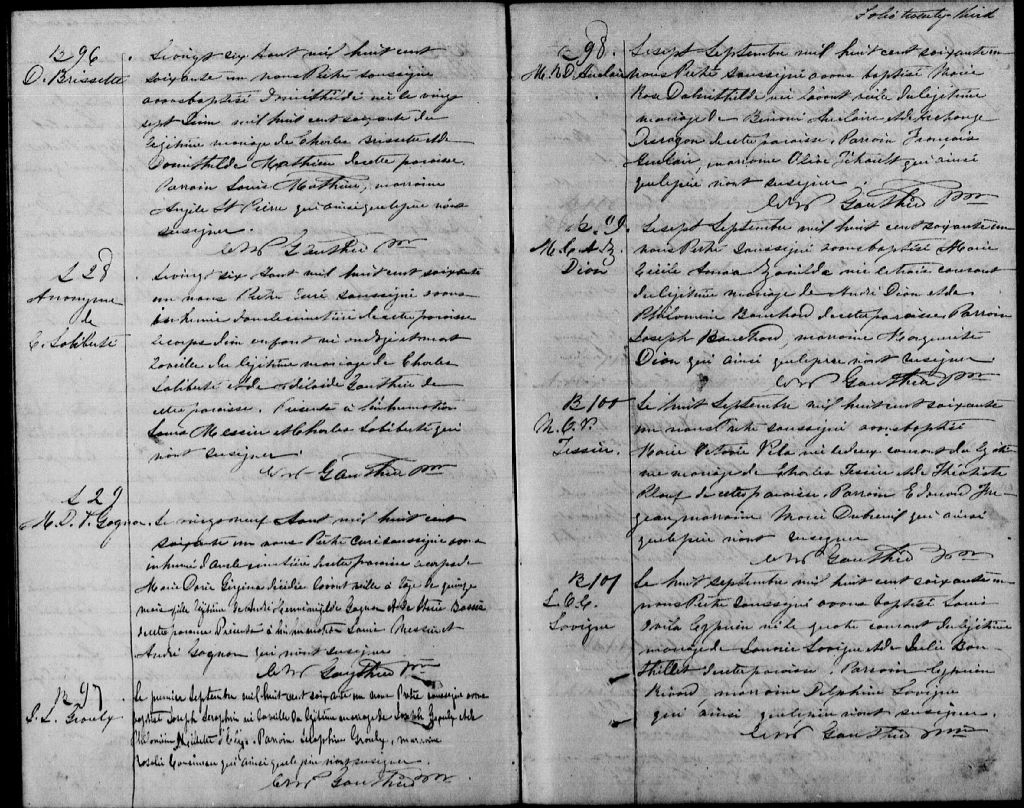 Folio twenty third
B 96
O. Brissette
Le vingt six Aout mil huit cent
soixante un nous Prêtre soussigné
avons baptisé Domithilde né le vingt
sept Juin mil huit cent soixante du
légitime mariage de Charles Brissette et de
Domithilde Mathieu de cette paroisse.
Parrain Louis Mathieu, marraine
Angèle St Pierre qui ainsi que le père n'ont
su signer.
Gauthier Ptre
S 28
Anonyme
de
C. Laliberté
Le vingt six Aout mil huit cent soixante
un nous Prêtre Curé soussigné avons
inhumé dans le cimetière de cette paroisse
le corps d'un enfant né ondoyé et mort
la veille du légitime mariage de Charles
Laliberté et de Adelaide Gauthier de
cette paroisse. Présents à l'inhumation
Louis Messier et Charles Laliberté qui
n'ont su signer.
Gauthier Ptre
S 29
M. D. V. Gagnon
Le vingt neuf Aout mil huit cent
soixante un nous Prêtre Curé soussigné avons
inhumé dans le cimetière de cette paroisse le corps de
Marie Marie décédée l'avant veille à l'age de quinze
mois fille légitime de André Gagnon et de Marie
de cette paroisse Présents à l'inhumation Louis Messier et
André Gagnon qui n'ont su signer
Gauthier Ptre
B 97
J. S. Grouly
Le premier Septembre mil huit cent soixante un nous Prêtre soussigné avons
baptisé Joseph Seraphin né la veille du légitime mariage de Joseph Grouly et de
Philomène. Parrain Séraphin Grouly, marraine
Rosalie qui ainsi que le père n'ont su signer.
Gauthier Ptre
B 98.
M. R. D. Auclair
Le sept Septembre mil huit cent soixante un
nous Prêtre soussigné avons baptisé Marie
Rose Domithilde née l'avant veille du légitime
mariage de Auclaire et de
de cette paroisse. Parrain François
Auclair, marraine qui ainsi
que le père n'ont su signer.
Gauthier Ptre
B. 99.
M. C. A. Z.
Dion
Le sept Septembre mil huit cent soixante un
nous Prêtre soussigné avons baptisé Marie
Cécile Anna Zoeilda née le trois courant
du légitime mariage de André Dion et de
Philomène Bouchard de cette paroisse. Parrain
Joseph Bouchard, marraine Marguerite
Dion qui ainsi que le père n'ont su signer
Gauthier Ptre
B 100
M. O. V.
Tessier.
Le huit Septembre mil huit cent soixante
un nous Prêtre soussigné avons baptisé
Marie née le deux courant du légiti-
me mariage de Charles Tessier et de Théotiste
Plouf de cette paroisse. Parrain Edouard
marraine Marie Dubreuil qui ainsi
que le père n'ont su signer
Gauthier Ptre
B 101
L. O. C.
Lavigne
Le huit septembre mil huit cent soixante un
nous Prêtre soussigné avons baptisé Louis
Cyprien né le quatre courant du légitime
mariage de Lavigne et de Julie Bou-
thillet de cette paroisse. Parrain Cyprien
Ricard marraine Delphine Lavigne
qui ainsi que le père n'ont su signer.
Gauthier Ptre